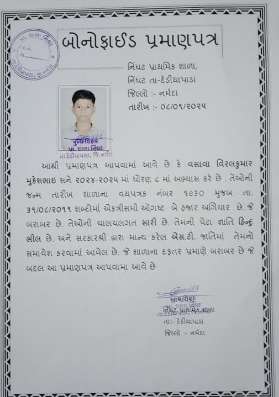 બોનોફાઈડ પ્રમાણપત્ર
નિઘટ પ્રાથમિક શાળા,
નિઘટ તા-દેડીયાપાડા
જિલ્લો :- નર્મદા
તારીખ :- ૦૮/૦૧/૨૦૨૫
આથી પ્રમાણપત્ર આપવામાં આવે છે કે વસાવા વિરલકુમાર
મુકેશભાઇ સને ૨૦૨૪-૨૦૨૫ માં ધોરણ ૮ માં અભ્યાસ કરે છે. તેઓની
જન્મ તારીખ શાળાના વયપત્રક નંબર ૧૦૩૦ મુજબ તા.
૩૧/૦૮/૨૦૧૧ શબ્દોમાં એકત્રીસમી ઓગષ્ટ બે હજાર અગિયાર છે. જે
બરાબર છે. તેઓની ચાલચલગત સારી છે. તેમની પેટા જ્ઞાતિ હિન્દુ
ભીલ છે. અને સરકારશ્રી દ્વારા માન્ય કરેલ એસ.ટી. જાતિમાં તેમનો
સમાવેશ કરવામાં આવેલ છે. જે શાળાના દફતર પ્રમાણે બરાબર છે જે
બદલ આ પ્રમાણપત્ર આપવામાં આવે છે
તા-દેડીયાપાડા
જિલ્લો :- નર્મદા